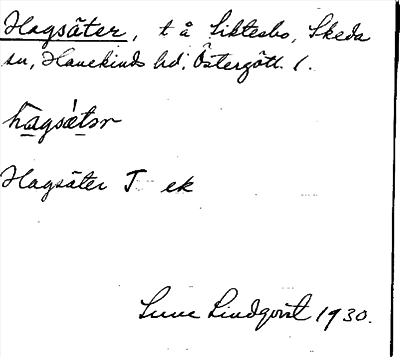 Hagsäter, t å Liktesbo, Skeda
sn, Hanekinds hd, Östergötl. l.
hagsä́tər
Hagsäter T ek
Sune Lindqvist 1930.